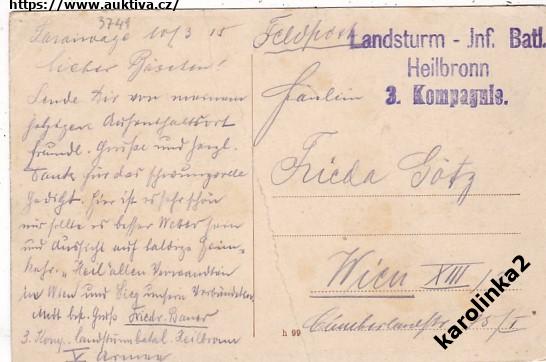 https://www.auktiva.cz/
3749
10/3 15
Feldpost
Landsturm - Inf. Batl.
Heilbronn
3. Kompagnie.
Lieber Bäschen!
Sende Dir von meinem
jetzigen Aufenthaltsort
freundl. Grüße und herzl.
Dank für das schwungvolle
Gedicht. Hier ist es sehr schön
nur sollte es besser Wetter sein
und Aussicht auf baldige Heim-
kehr. "Heil allen Verwandten
in Wien und Sieg unsern Verbündeten
Mit bst. Gruß Friedr. Bauer
3. Komp. Landsturmbatal. Heilbronn
Armee
Fräulein
Frieda Götz
Wien XIII
Cumberlandstr.
h 99
karolinka2